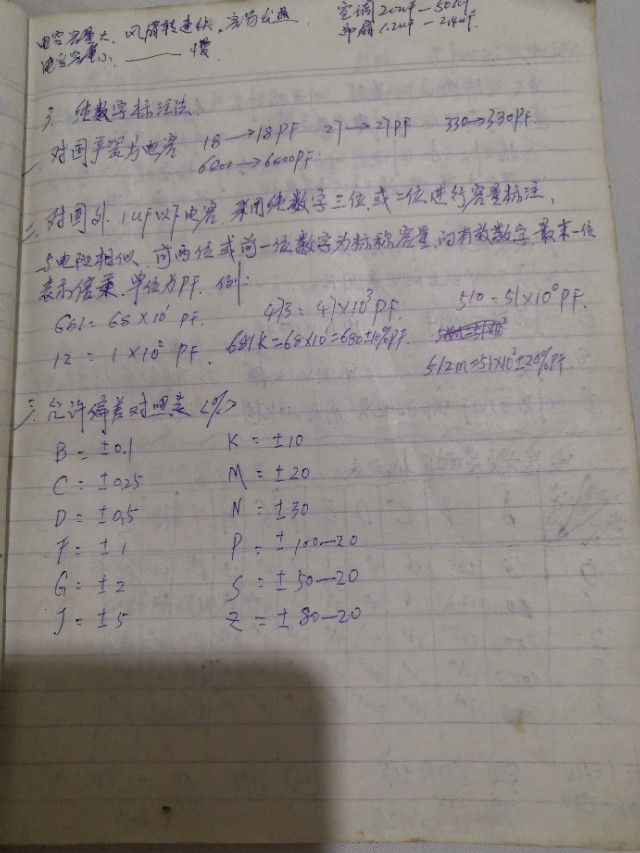 电容容量大、风扇转速快、容易发热 空调20uF—50uF
电容容量小、—— 慢 吊扇1.2uF—2.4uF
3、纯数字标注法
一、对国产瓷片电容 18→18PF 27→27PF 330→330PF
6800→6800PF
二、对国外、1uF以下电容、采用纯数字三位或二位进行容量标注、
与电阻相似、前两位或前一位数字为标称容量的有效数字、最末一位
表示倍乘、单位为PF、例:
681=68×10¹ PF、 473=47×10³PF、 510=51×10⁰PF、
12=1×10² PF、 681K=68×10¹=680±10%PF、
512m=51×10²±20%PF、
三、允许偏差对照表<%>
B=±0.1 K=±10
C=±0.25 M=±20
D=±0.5 N=±30
F=±1 P=±100—20
G=±2 S=±50—20
J=±5 Z=±80—20